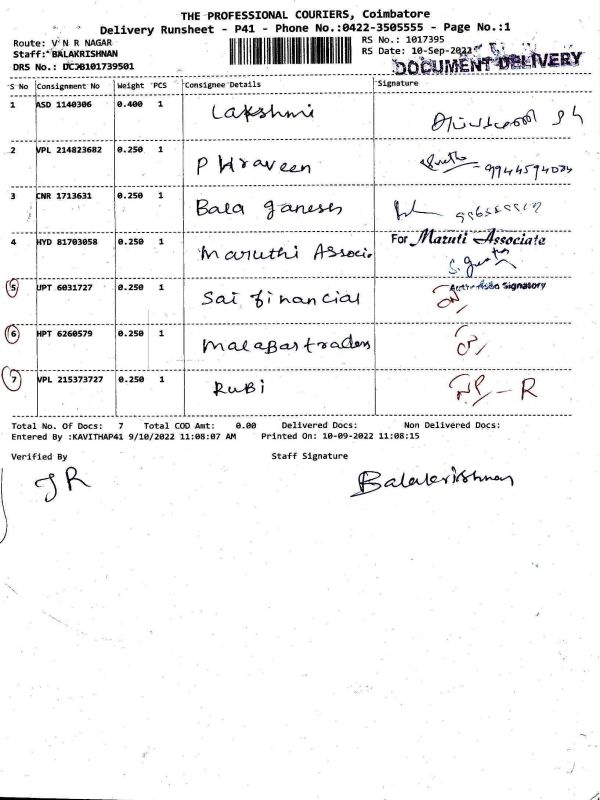 THE PROFESSIONAL COURIERS, Coimbatore
Delivery Runsheet - P41 - Phone No.:0422-3505555 - Page No.:1
Route: V N R NAGAR RS No.: 1017395
Staff: BALAKRISHNAN RS Date: 10-Sep-2022
DRS No.: DCJB101739501 DOCUMENT DELIVERY
S No Consignment No Weight PCS Consignee Details Signature
1 ASD 1140306 0.400 1 Lakshmi
2 VPL 214823682 0.250 1 P Hraveen
3 CNR 1713631 0.250 1 Bala ganesh
4 HYD 81703058 0.250 1 Maruthi Associ. For Maruti Associate
Signatory
5 UPT 6031727 0.250 1 Sai financial
6 HPT 6260579 0.250 1 Malabar traders
7 VPL 215373727 0.250 1 RUBi - R
Total No. Of Docs: 7 Total COD Amt: 0.00 Delivered Docs: Non Delivered Docs:
Entered By :KAVITHAP41 9/10/2022 11:08:07 AM Printed On: 10-09-2022 11:08:15
Verified By Staff Signature
JR Balakrishnan